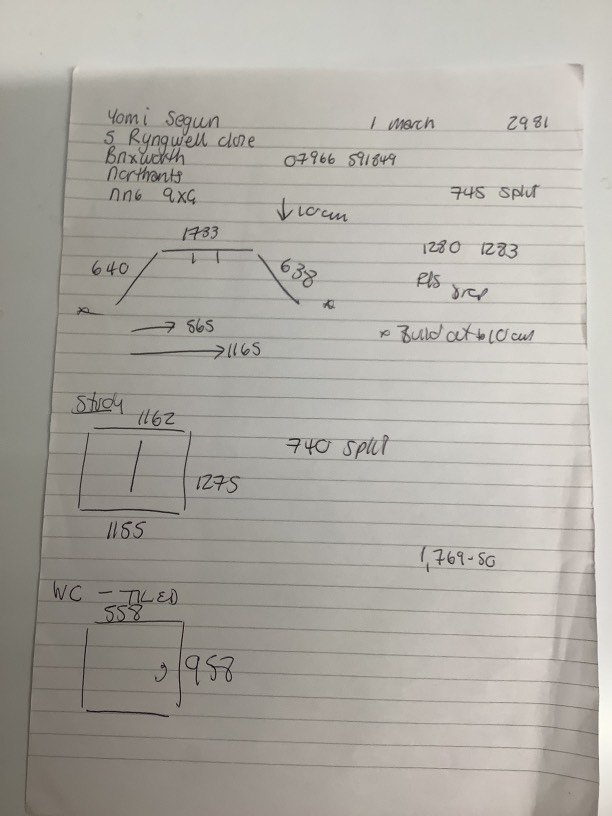 Yomi Segun 1 march 2981
5 Ryngwell close
Brixworth 07966 591849
northants
nn6 9xG 745 split
↓ 10cm
1733
640 638 1280 1283
x x
→ 865 x Build out 10cm
→ 1165
Study
1162
740 split
1275
1155
1,769-50
WC - TILED
558
958